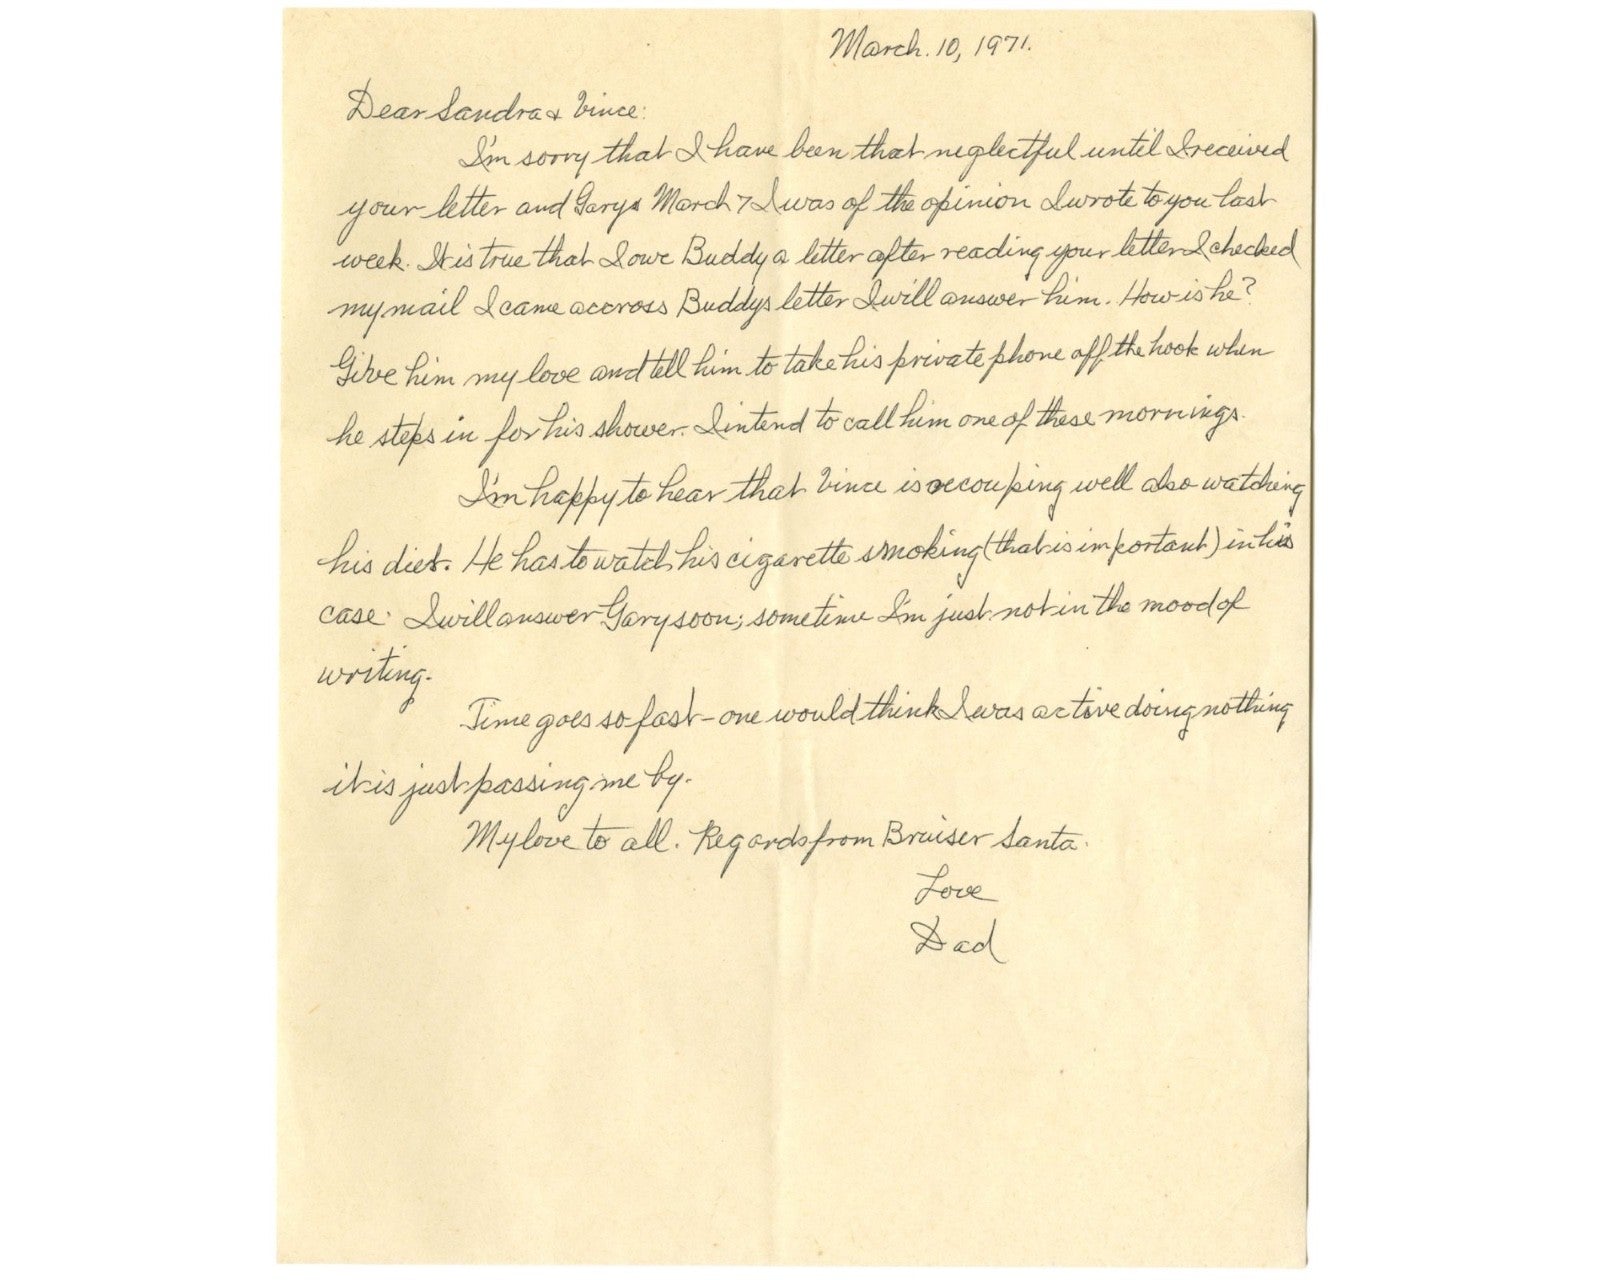 March. 10, 1971.
Dear Sandra & Vince:
I'm sorry that I have been that neglectful until I received
your letter and Garys March 7 I was of the opinion I wrote to you last
week. It is true that I owe Buddy a letter after reading your letter I checked
my mail I came accross Buddys letter I will answer him. How is he?
Give him my love and tell him to take his private phone off the hook when
he steps in for his shower. I intend to call him one of these mornings.
I'm happy to hear that Vince is recouping well also watching
his diet. He has to watch his cigarette smoking (that is important) in his
case. I will answer Gary soon; sometime I'm just not in the mood of
writing.
Time goes so fast - one would think I was active doing nothing
it is just passing me by.
My love to all. Regards from Bruiser Santa.
Love
Dad